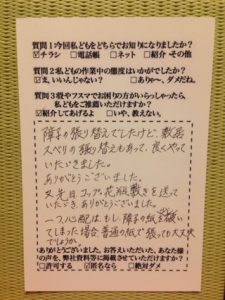 質問1今回私どもをどちらでお知りになりましたか?
☑チラシ □電話帳 □ネット □紹介 その他
質問2私どもの作業中の態度はいかがでしたか?
☑ま、いいんじゃない? □ありゃ〜、ダメだね。
質問3畳やフスマでお困りの方がいらっしゃったら、
私どもをご推薦いただけますか?
☑紹介してあげるよ □いや、教えない。
障子の張り替えでしたけど、敷居
スベリの張り替えもあって、良くやって
いただきました。
ありがとうございました。
又先日コップと花瓶敷きを送って
いただき、ありがとうございました。
一つ心配は、もし障子の紙を破い
てしまった場合普通の紙で張っても大丈夫
でしょうか。
ありがとうございました。お答えいただいた、あなた様
の声を、弊社資料等に掲載させていただけますか?
□許可する ☑匿名なら □絶対ダメ